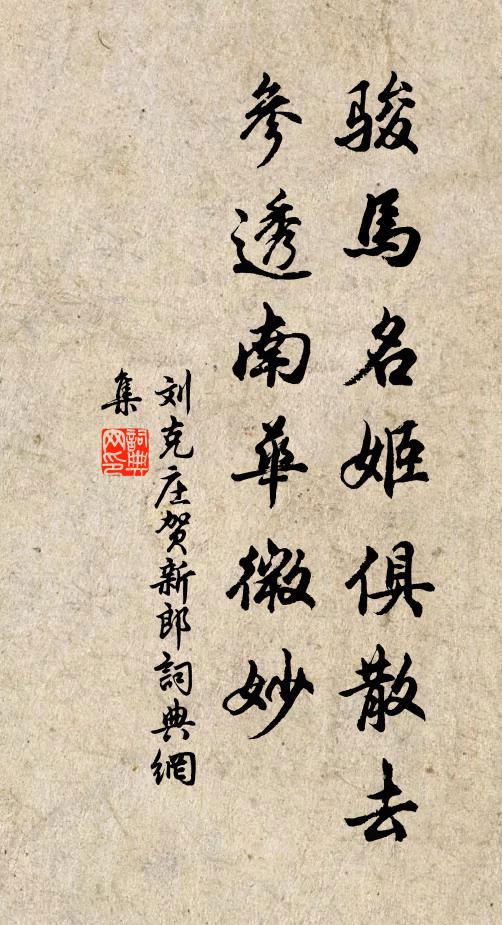 骏馬名姬俱散去
參透南華微妙
刘克庄贺新郎詞典網
集
詞典
网印